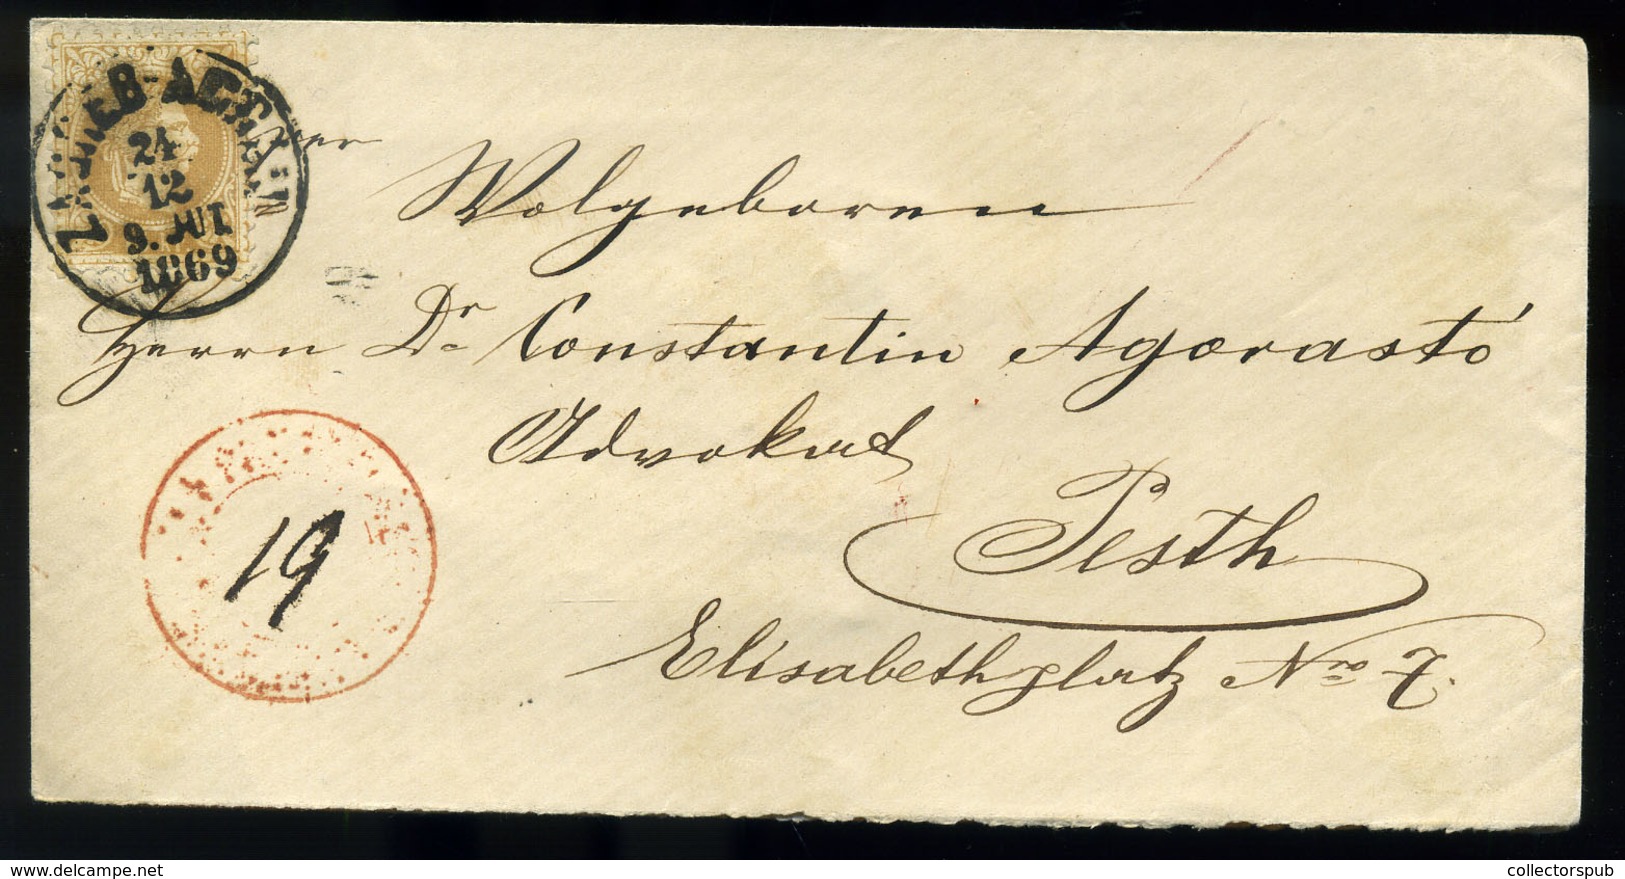 ZAGREB-AGRAM
24
12
9. JUL
1869
Wolgeboren
Herrn Dr Constantin Agorastó
Advokat
Pesth
Elisabethplatz Nro 7.
19
collectorspub